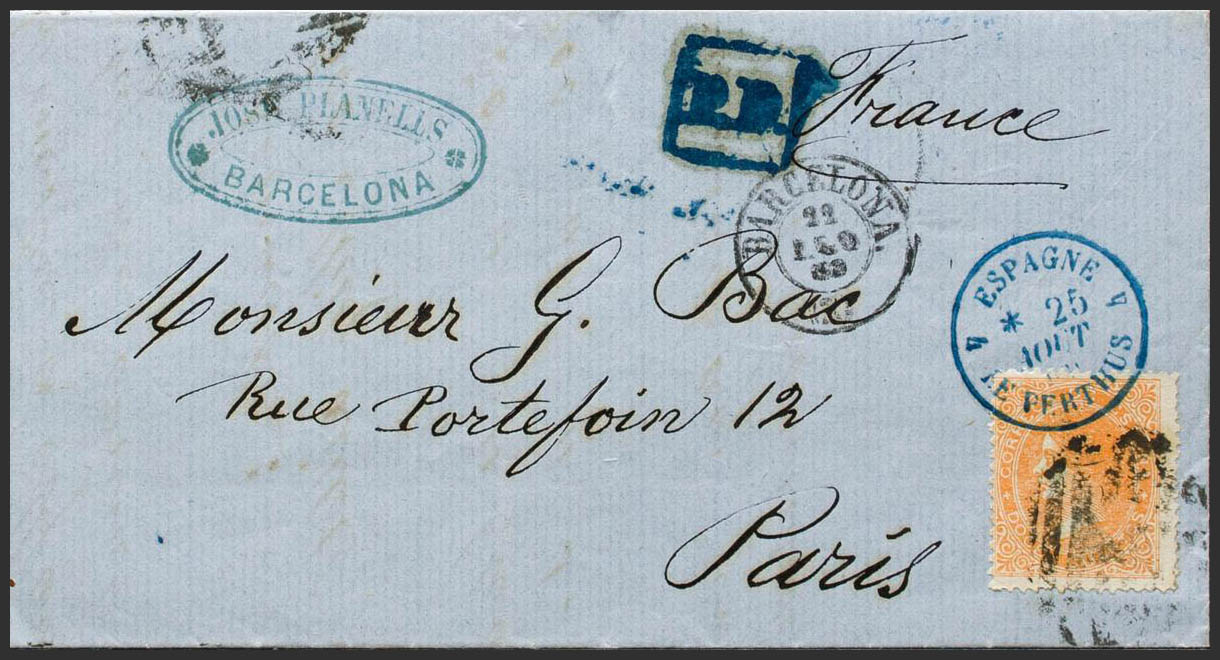 JOSÉ PLANELLS
BARCELONA
P.D.
France
BARCELONA.
22
AGO
68
ESPAGNE
25
AOUT
LE PERTHUS
Monsieur G. Bac
Rue Portefoin 12
Paris